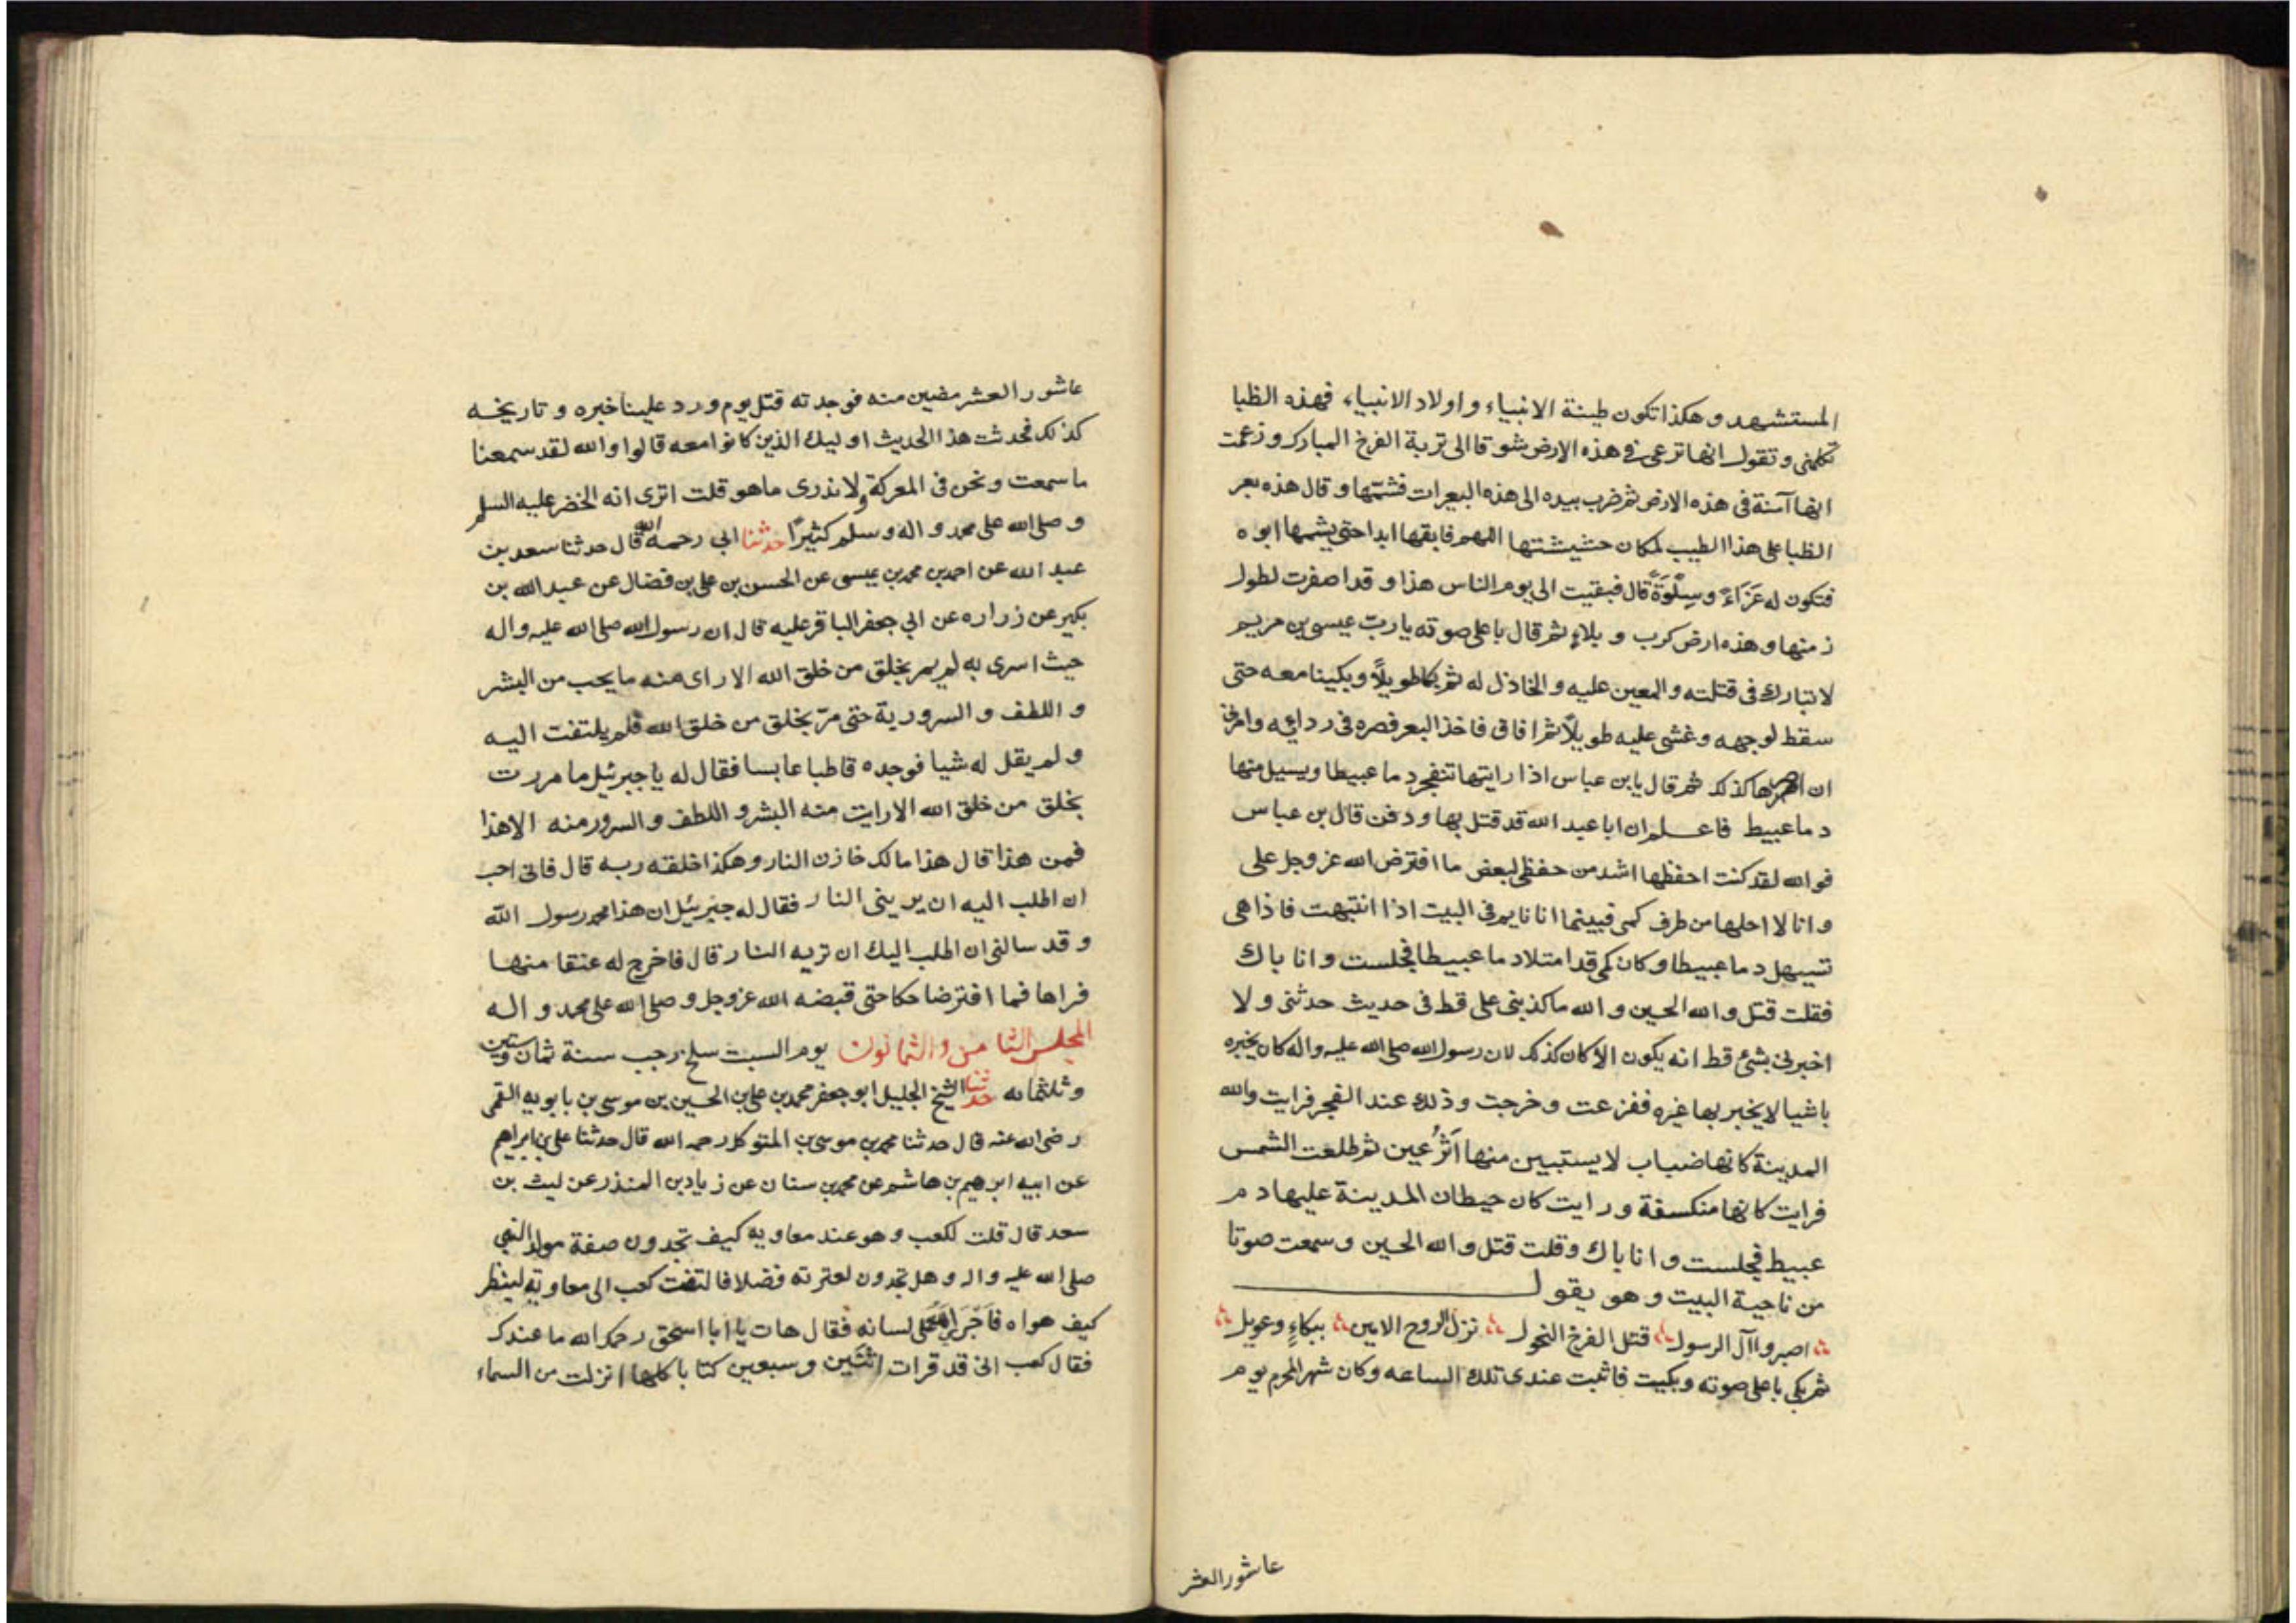 المستشهد و هكذا تكون طينة الانبياء و اولاد الانبياء فهذه الظبا
تكلمنى و تقول انها ترعى فى هذه الارض شوقا الى تربة الفرخ المبارك و زعمت
انها آمنة فى هذه الارض ثم ضرب بيده الى هذه البعرات فشمها و قال هذه بعر
الظبا على هذا الطيب لمكان حشيشتها اللهم فابقها ابدا حتى يشمها ابوه
فتكون له عَزَاءً و سِلْوَةً قال فبقيت الى يوم الناس هذا و قد اصفرت لطول
زمنها و هذه ارض كرب و بلاءٍ ثم قال باعلى صوته يا ربّ عيسى بن مريم
لا تبارك فى قتلته و المعين عليه و الخاذل له ثم بكا طويلاً و بكينا معه حتى
سقط لوجهه و غشى عليه طويلاً ثم افاق فاخذ البعر فصره فى ردائه و امرنى
ان اصرها كذلك ثم قال يا بن عباس اذا رايتها تنفجر دما عبيطا و يسيل منها
دما عبيط فاعلم ان ابا عبد الله قد قتل بها و دفن قال بن عباس
فو الله لقد كنت احفظها اشد من حفظى لبعض ما افترض الله عز و جل على
و انا لا احلها من طرف كمى فبينما انا نايم فى البيت اذا انتبهت فاذا هى
تسيهل دما عبيطا و كان كمى قد امتلا دما عبيطا فجلست و انا باك
فقلت قتل و الله الحسين و الله ما كذبنى على قط فى حديث حدثنى و لا
اخبرنى بشئ قط انه يكون الا كان كذلك لان رسول الله صلى الله عليه و اله كان يخبره
باشيا لا يخبر بها غيره ففزعت و خرجت و ذلك عند الفجر فرايت و الله
المدينة كانها ضباب لا يستبين منها اَثَرُ عين ثم طلعت الشمس
فرايت كانها منكسفة و رايت كان حيطان المدينة عليها دم
عبيط فجلست و انا باك و قلت قتل و الله الحسين و سمعت صوتا
من ناحية البيت و هو يقول
اصبروا آل الرسول قتل الفرخ النحول نزل الروح الامين ببكاءٍ و عويل
ثم بكى باعلى صوته و بكيت فاثبت عندى تلك الساعه و كان شهر المحرم يوم
عاشور العشر
عاشور العشر مضين منه فوجدته قتل يوم ورد علينا خبره و تاريخه
كذلك فحدثت هذا الحديث اوليك الذين كانوا معه قالوا و الله لقد سمعنا
ما سمعت و نحن فى المعركة و لا ندرى ما هو قلت اترى انه الخضر عليه السلم
و صلى الله على محمد و اله و سلم كثيرًا حدثنا ابى رحمه الله قال حدثنا سعد بن
عبد الله عن احمد بن محمد بن عيسى عن الحسن بن على بن فضال عن عبد الله بن
بكير عن زراره عن ابى جعفر الباقر عليه قال ان رسول الله صلى الله عليه و اله
حيث اسرى به لم يمر بخلق من خلق الله الا راى منه ما يحب من البشر
و اللطف و السرور به حتى مرّ بخلق من خلق الله فلم يلتفت اليه
و لم يقل له شيا فوجده قاطبا عابسا فقال له يا جبرئيل ما مررت
بخلق من خلق الله الا رايت منه البشر و اللطف و السرور منه الا هذا
فمن هذا قال هذا مالك خازن النار و هكذا خلقه ربه قال فانى احب
ان اطلب اليه ان يرينى النار فقال له جبرئيل ان هذا محمد رسول الله
و قد سالنى ان اطلب اليك ان تريه النار قال فاخرج له عنقا منها
فراها فما افتر ضاحكا حتى قبضه الله عز و جل و صلى الله على محمد و اله
المجلس الثامن و الثمانون يوم السبت سلخ رجب سنة ثمان و ستين
و ثلثمائه حدثنا الشيخ الجليل ابو جعفر محمد بن على بن الحسين بن موسى بن بابويه القمى
رضى الله عنه قال حدثنا محمد بن موسى بن المتوكل رحمه الله قال حدثنا على بن ابراهيم
عن ابيه ابرهيم بن هاشم عن محمد بن سنان عن زياد بن المنذر عن ليث بن
سعد قال قلت لكعب و هو عند معاويه كيف تجدون صفة مولد النبى
صلى الله عليه و اله و هل تجدون لعترته فضلا فالتفت كعب الى معاوية لينظر
كيف هواه فاَجْرَى الله على لسانه فقال هات يا ابا اسحق رحمك الله ما عندك
فقال كعب انى قد قرات اثنين و سبعين كتابا كلها انزلت من السماء